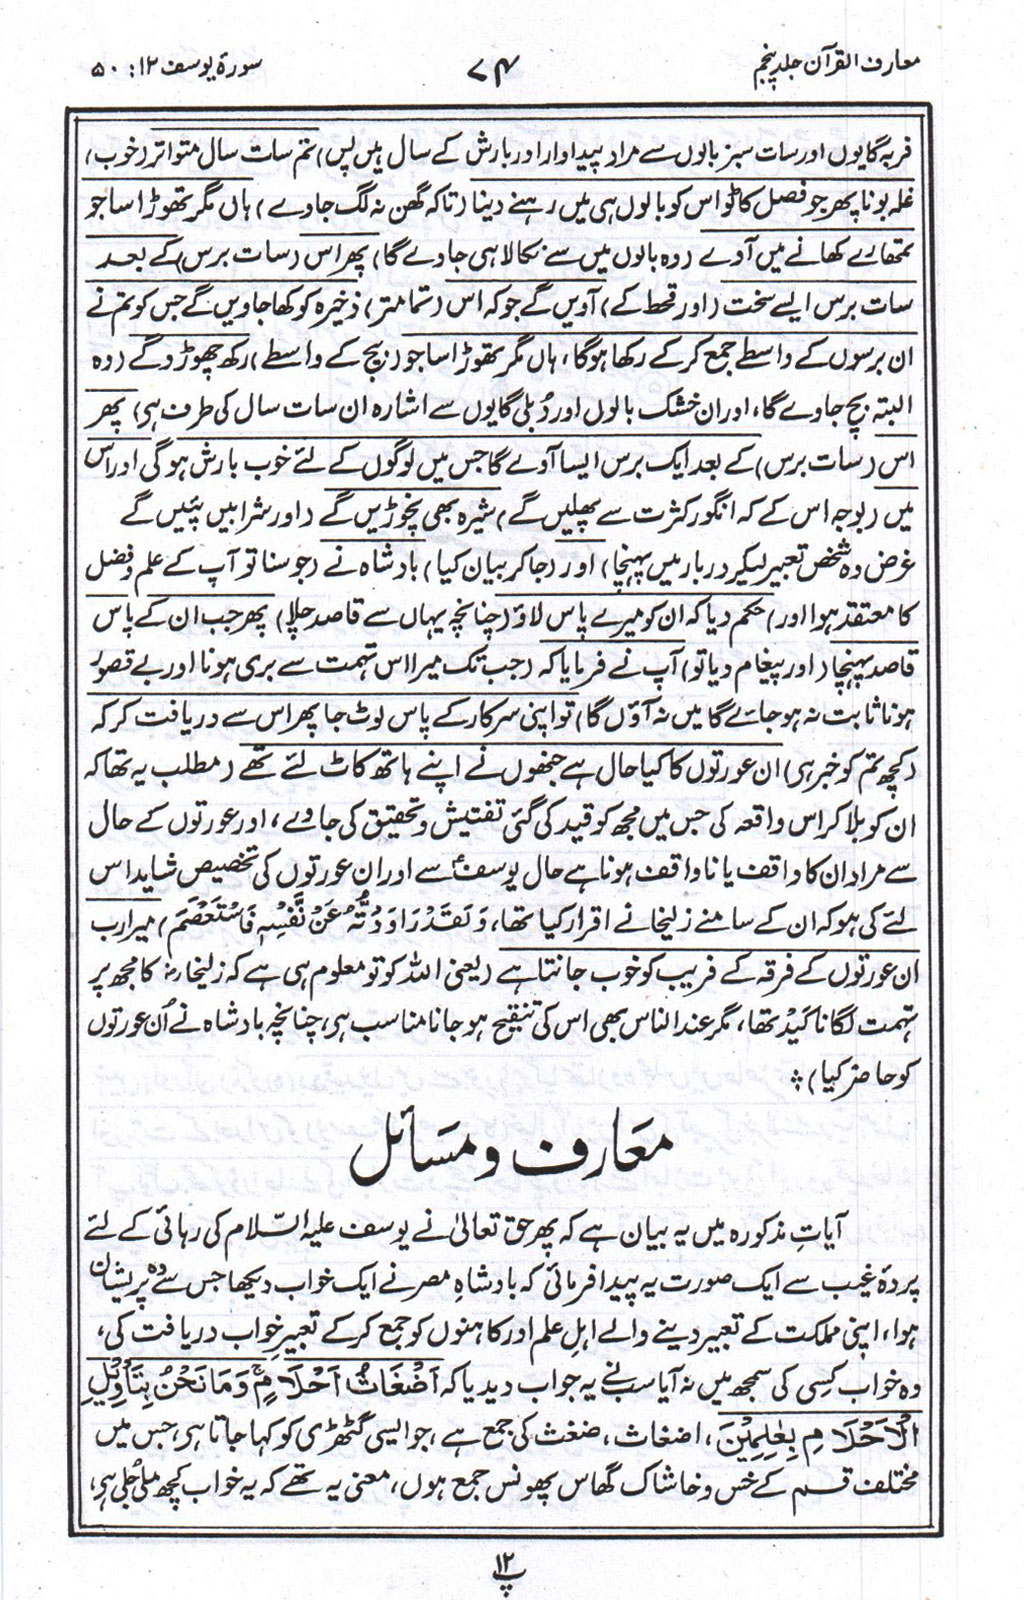 معارف القرآن جلد پنجم
۷۴
سورۃ یوسف ۱۲: ۵۰
فربہ گایوں اور سات سبز بالوں سے مراد پیداوار اور بارش کے سال ہیں پس) تم سات سال متواتر (خوب)
غلہ بونا پھر جو فصل کاٹو اس کو بالوں ہی میں رہنے دینا (تاکہ گھن نہ لگ جاوے) ہاں مگر تھوڑا سا جو
تمھارے کھانے میں آوے (وہ بالوں میں سے نکالا ہی جاوے گا) پھر اس (سات برس) کے بعد
سات برس ایسے سخت (اور قحط کے) آویں گے جو کہ اس (تمامتر) ذخیرہ کو کھا جاویں گے جس کو تم نے
ان برسوں کے واسطے جمع کرکے رکھا ہوگا، ہاں مگر تھوڑا سا جو (بیج کے واسطے) رکھ چھوڑو گے (وہ
البتہ بچ جاوے گا، اور ان خشک بالوں اور دُبلی گایوں سے اشارہ ان سات سال کی طرف ہی) پھر
اس (سات برس) کے بعد ایک برس ایسا آوے گا جس میں لوگوں کے لئے خوب بارش ہوگی اور اس
میں (بوجہ اس کے کہ انگور کثرت سے پھلیں گے) شیرہ بھی نچوڑیں گے (اور شرابیں پئیں گے
غرض وہ شخص تعبیر لیکر دربار میں پہنچا) اور (جاکر بیان کیا) بادشاہ نے (جو سنا تو آپ کے علم و فضل
کا معتقد ہوا اور) حکم دیا کہ ان کو میرے پاس لاؤ (چنانچہ یہاں سے قاصد چلا) پھر جب ان کے پاس
قاصد پہنچا (اور پیغام دیا تو) آپ نے فرمایا کہ (جب تک میرا اس تہمت سے بری ہونا اور بے قصور
ہونا ثابت نہ ہو جائے گا میں نہ آؤں گا) تو اپنی سرکار کے پاس لوٹ جا پھر اس سے دریافت کر کہ
(کچھ تم کو خبر ہی) ان عورتوں کا کیا حال ہے جنھوں نے اپنے ہاتھ کاٹ لئے تھے (مطلب یہ تھا کہ
ان کو بلا کر اس واقعہ کی جس میں مجھ کو قید کی گئی تفتیش و تحقیق کی جاوے، اور عورتوں کے حال
سے مراد ان کا واقف یا ناواقف ہونا ہے حال یوسفؑ سے اور ان عورتوں کی تخصیص شاید اس
لئے کی ہو کہ ان کے سامنے زلیخا نے اقرار کیا تھا، وَلَقَدْ رَاوَدْتُّهُ عَنْ نَّفْسِهٖ فَاسْتَعْصَمَ) میرا رب
ان عورتوں کے فرقہ کے فریب کو خوب جانتا ہے (یعنی اللہ کو تو معلوم ہی ہے کہ زلیخا کا مجھ پر
تہمت لگانا کَیْد تھا، مگر عند الناس بھی اس کی تنقیح ہو جانا مناسب ہی، چنانچہ بادشاہ نے اُن عورتوں
کو حاضر کیا)
معارف و مسائل
آیاتِ مذکورہ میں یہ بیان ہے کہ پھر حق تعالیٰ نے یوسف علیہ السّلام کی رہائی کے لئے
پردۂ غیب سے ایک صورت یہ پیدا فرمائی کہ بادشاہِ مصر نے ایک خواب دیکھا جس سے وہ پریشان
ہوا، اپنی مملکت کے تعبیر دینے والے اہلِ علم اور کاہنوں کو جمع کرکے تعبیرِ خواب دریافت کی،
وہ خواب کسی کی سمجھ میں نہ آیا سب نے یہ جواب دیدیا کہ اَضْغَاثُ اَحْلَامٍ ۚ وَمَا نَحْنُ بِتَأْوِيْلِ
الْاَحْلَامِ بِعٰلِمِيْنَ، اضغاث، ضغث کی جمع ہے، جو ایسی گٹھڑی کو کہا جاتا ہی، جس میں
مختلف قسم کے خس و خاشاک گھاس پھونس جمع ہوں، معنی یہ تھے کہ یہ خواب کچھ ملی جُلی ہی،
پ ۱۲